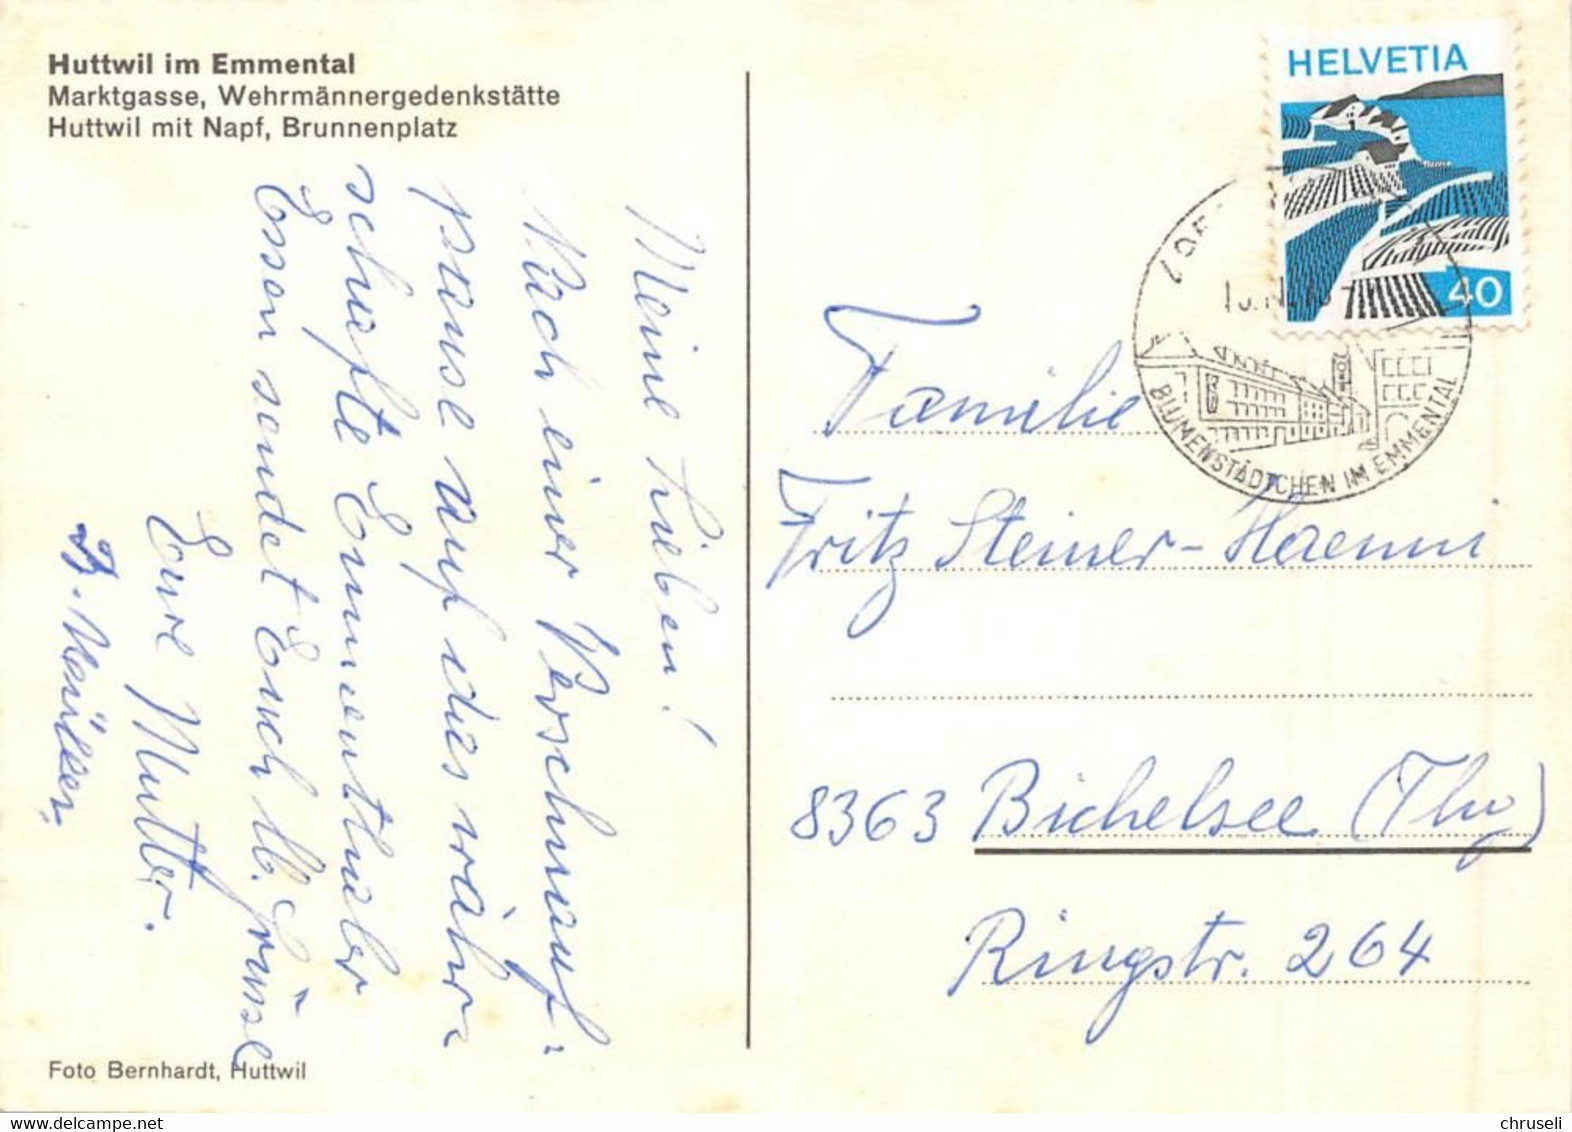 Huttwil im Emmental
Marktgasse, Wehrmännergedenkstätte
Huttwil mit Napf, Brunnenplatz
Meine Lieben!
Nach einer Verschnauf=
pause auf das währ
schafte Emmenthaler
Essen sendet Euch lb. Grüsse
Eure Mutter.
Foto Bernhardt, Huttwil
HELVETIA
40
BLUMENSTÄDTCHEN IM EMMENTAL
Familie
Fritz Steiner-Haenni
8363 Bichelsee (Thg)
Ringstr. 264
www.delcampe.net
chruseli